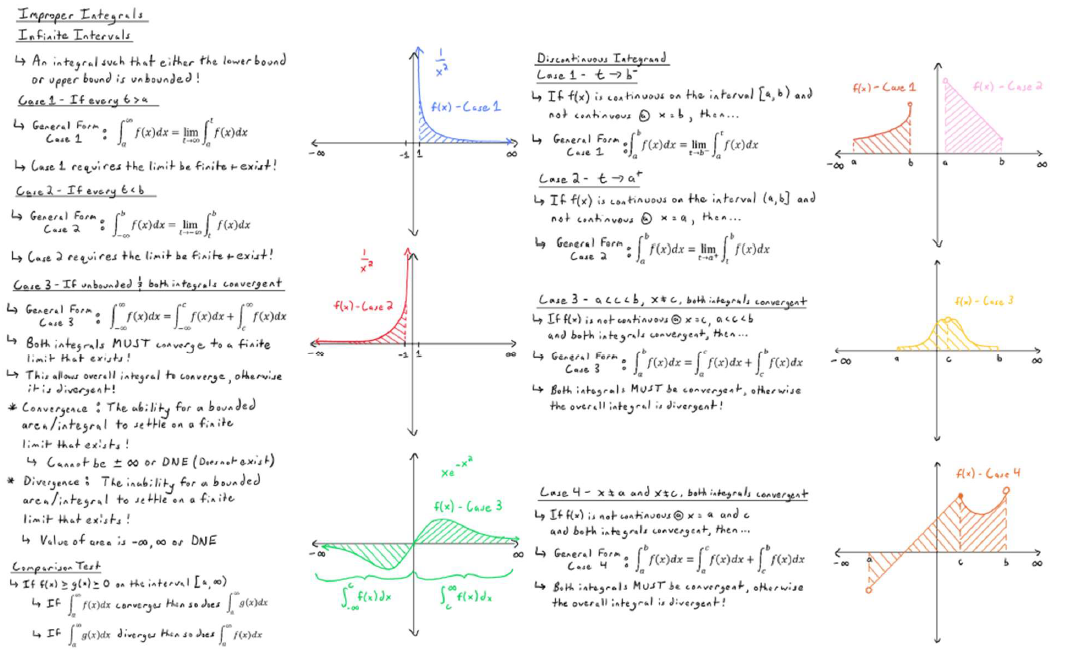 Improper Integrals
Infinite Intervals
↳ An integral such that either the lower bound
or upper bound is unbounded!
Case 1 - If every t > a
↳ General Form Case 1 : ∫_a^∞ f(x)dx = lim_{t→∞} ∫_a^t f(x)dx
↳ Case 1 requires the limit be finite + exist!
Case 2 - If every t < b
↳ General Form Case 2 : ∫_{-∞}^b f(x)dx = lim_{t→-∞} ∫_t^b f(x)dx
↳ Case 2 requires the limit be finite + exist!
Case 3 - If unbounded & both integrals convergent
↳ General Form Case 3 : ∫_{-∞}^∞ f(x)dx = ∫_{-∞}^c f(x)dx + ∫_c^∞ f(x)dx
↳ Both integrals MUST converge to a finite
limit that exists!
↳ This allows overall integral to converge, otherwise
it is divergent!
* Convergence : The ability for a bounded
area/integral to settle on a finite
limit that exists!
↳ Cannot be ± ∞ or DNE (Does not exist)
* Divergence : The inability for a bounded
area/integral to settle on a finite
limit that exists!
↳ Value of area is -∞, ∞ or DNE
Comparison Test
↳ If f(x) ≥ g(x) ≥ 0 on the interval [a, ∞)
↳ If ∫_a^∞ f(x)dx converges then so does ∫_a^∞ g(x)dx
↳ If ∫_a^∞ g(x)dx diverges then so does ∫_a^∞ f(x)dx
1/x²
f(x) - Case 1
-∞ -1 1 ∞
1/x²
f(x) - Case 2
-∞ -1 1 ∞
xe^{-x²}
f(x) - Case 3
-∞ ∞
∫_{-∞}^c f(x)dx ∫_c^∞ f(x)dx
Discontinuous Integrand
Case 1 - t → b⁻
↳ If f(x) is continuous on the interval [a, b) and
not continuous @ x = b, then...
↳ General Form Case 1 : ∫_a^b f(x)dx = lim_{t→b⁻} ∫_a^t f(x)dx
Case 2 - t → a⁺
↳ If f(x) is continuous on the interval (a, b] and
not continuous @ x = a, then...
↳ General Form Case 2 : ∫_a^b f(x)dx = lim_{t→a⁺} ∫_t^b f(x)dx
Case 3 - a < c < b, x ≠ c, both integrals convergent
↳ If f(x) is not continuous @ x = c, a < c < b
and both integrals convergent, then...
↳ General Form Case 3 : ∫_a^b f(x)dx = ∫_a^c f(x)dx + ∫_c^b f(x)dx
↳ Both integrals MUST be convergent, otherwise
the overall integral is divergent!
Case 4 - x ≠ a and x ≠ c, both integrals convergent
↳ If f(x) is not continuous @ x = a and c
and both integrals convergent, then...
↳ General Form Case 4 : ∫_a^b f(x)dx = ∫_a^c f(x)dx + ∫_c^b f(x)dx
↳ Both integrals MUST be convergent, otherwise
the overall integral is divergent!
f(x) - Case 1 f(x) - Case 2
-∞ a b a b ∞
f(x) - Case 3
-∞ a c b ∞
f(x) - Case 4
-∞ a c b ∞